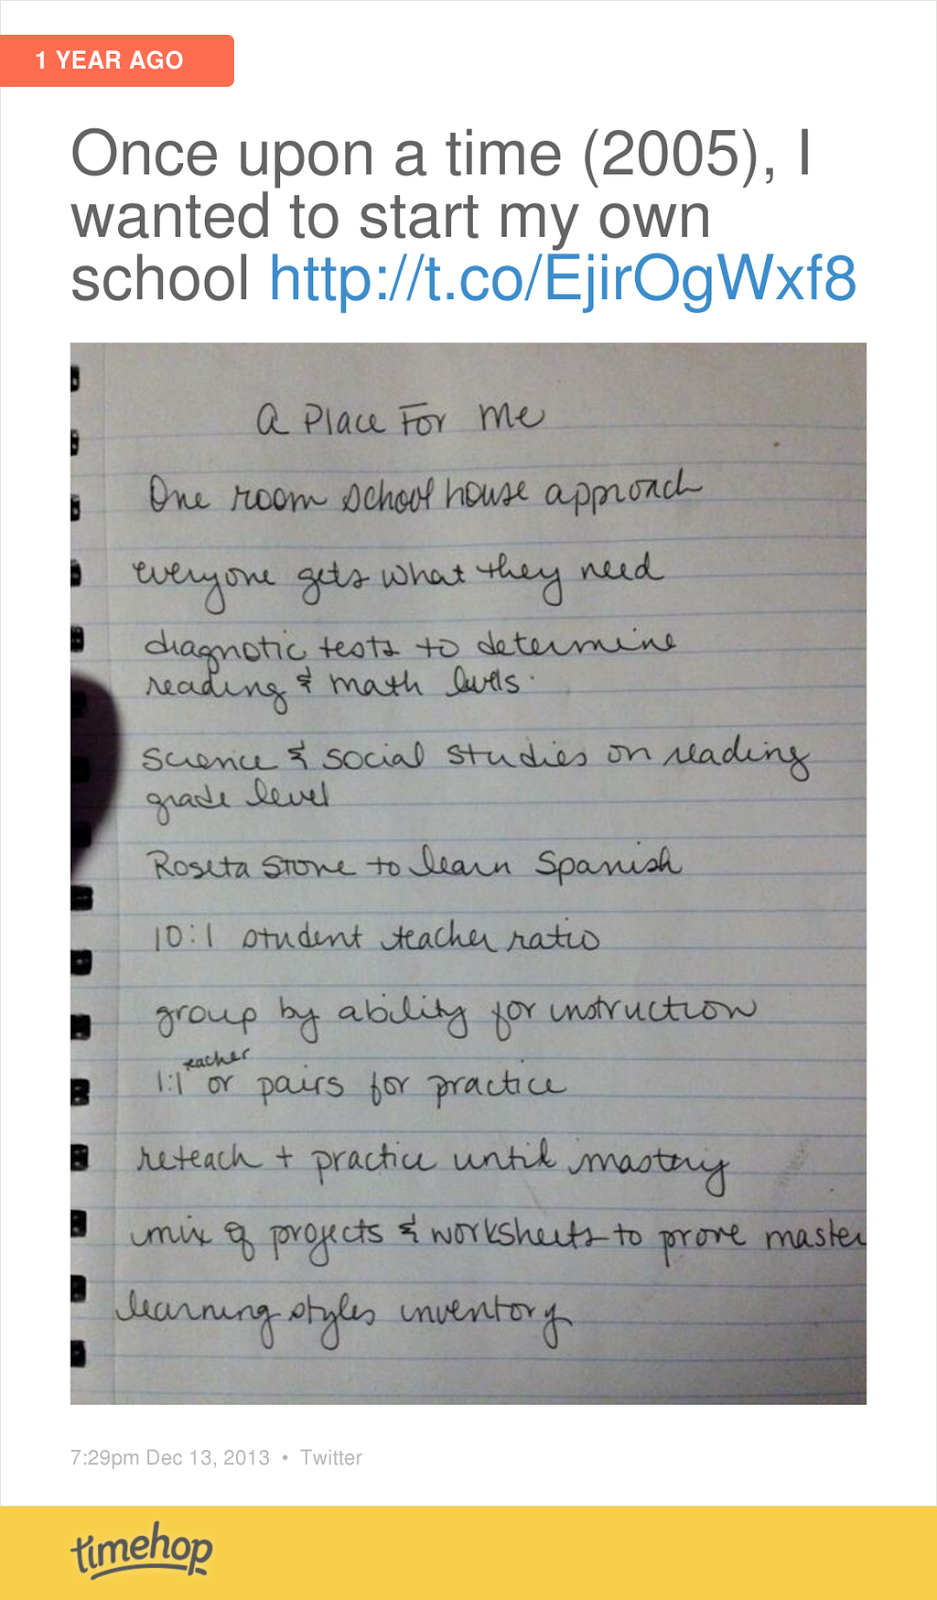 1 YEAR AGO
Once upon a time (2005), I
wanted to start my own
school http://t.co/EjirOgWxf8
A Place For Me
One room school house approach
everyone gets what they need
diagnostic tests to determine
reading & math levels.
Science & social studies on reading
grade level
Roseta Stone to learn Spanish
10:1 student teacher ratio
group by ability for instruction
teacher
1:1 or pairs for practice
reteach + practice until mastery
mix of projects & worksheets to prove master
learning styles inventory
7:29pm Dec 13, 2013 • Twitter
timehop